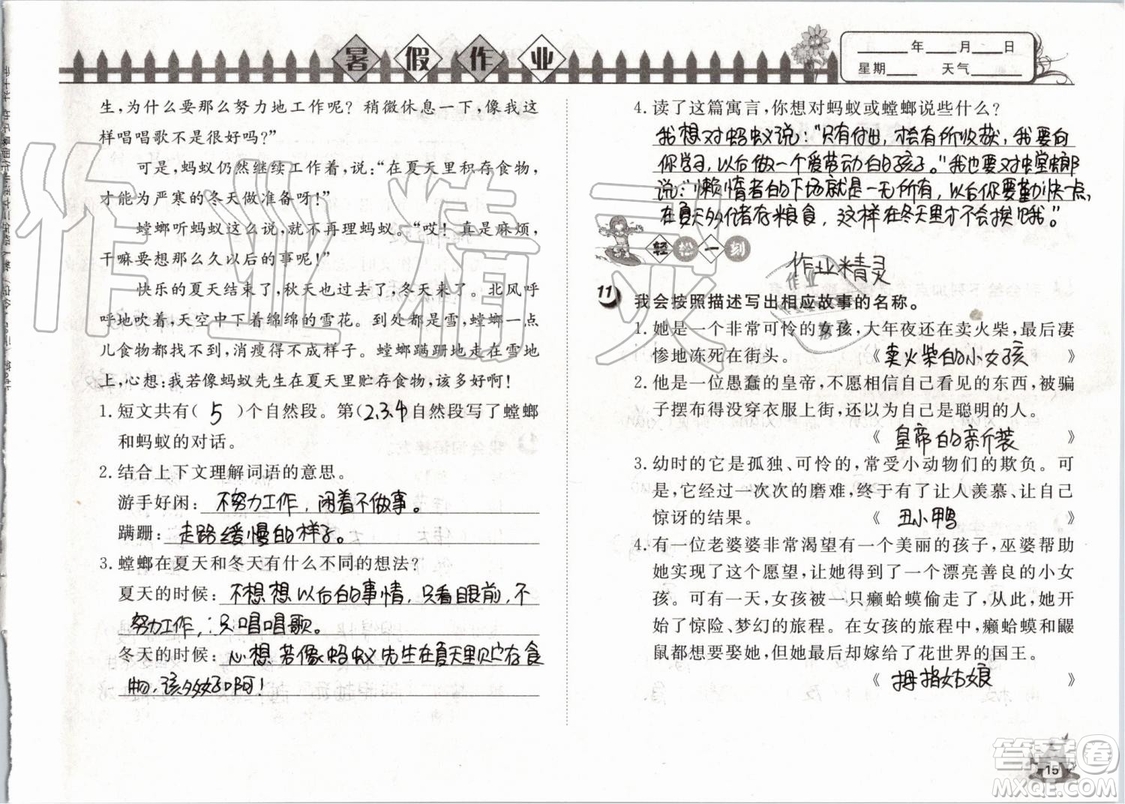 暑假作业
____年____月____日
星期____ 天气____
生,为什么要那么努力地工作呢?稍微休息一下,像我这
样唱唱歌不是很好吗?”
可是,蚂蚁仍然继续工作着,说:“在夏天里积存食物,
才能为严寒的冬天做准备呀!”
螳螂听蚂蚁这么说,就不再理蚂蚁。“哎!真是麻烦,
干嘛要想那么久以后的事呢!”
快乐的夏天结束,秋天也过去,冬天来了。北风呼
呼地吹着,天空中下着绵绵的雪花。到处都是雪,螳螂一点
儿食物都找不到,消瘦得不成样子。螳螂蹒跚地走在雪地
上,心想:我若像蚂蚁先生在夏天里贮存食物,该多好啊!
1. 短文共有( 5 )个自然段。第(2.3.4)自然段写了螳螂
和蚂蚁的对话。
2. 结合上下文理解词语的意思。
游手好闲:不努力工作,闲着不做事。
蹒跚:走路缓慢的样子。
3. 螳螂在夏天和冬天有什么不同的想法?
夏天的时候:不想想以后的事情,只看眼前,不
努力工作,只唱唱歌。
冬天的时候:心想若像蚂蚁先生在夏天里贮存食
物,该多好啊!
4. 读了这篇寓言,你想对蚂蚁或螳螂说些什么?
我想对蚂蚁说:“只有付出,才会有所收获,我要向
你学习,以后做一个爱劳动的孩子。”我也要对螳螂
说:“懒惰者的下场就是一无所有,以后你要勤快点,
在夏天多储存粮食,这样在冬天里才不会挨饿。”
轻松一刻
作业精灵
11 我会按照描述写出相应故事的名称。
1. 她是一个非常可怜的女孩,大年夜还在卖火柴,最后凄
惨地冻死在街头。 《 卖火柴的小女孩 》
2. 他是一位愚蠢的皇帝,不愿相信自己看见的东西,被骗
子摆布得没穿衣服上街,还以为自己是聪明的人。
《 皇帝的新装 》
3. 幼时的它是孤独、可怜的,常受小动物们的欺负。可
是,它经过一次次的磨难,终于有了让人羡慕、让自己
惊讶的结果。 《 丑小鸭 》
4. 有一位老婆婆非常渴望有一个美丽的孩子,巫婆帮助
她实现了这个愿望,让她得到了一个漂亮善良的小女
孩。可有一天,女孩被一只癞蛤蟆偷走了,从此,她开
始了惊险、梦幻的旅程。在女孩的旅程中,癞蛤蟆和鼹
鼠都想要娶她,但她最后却嫁给了花世界的国王。
《 拇指姑娘 》
作业精灵
答案圈
MXQE.COM
15